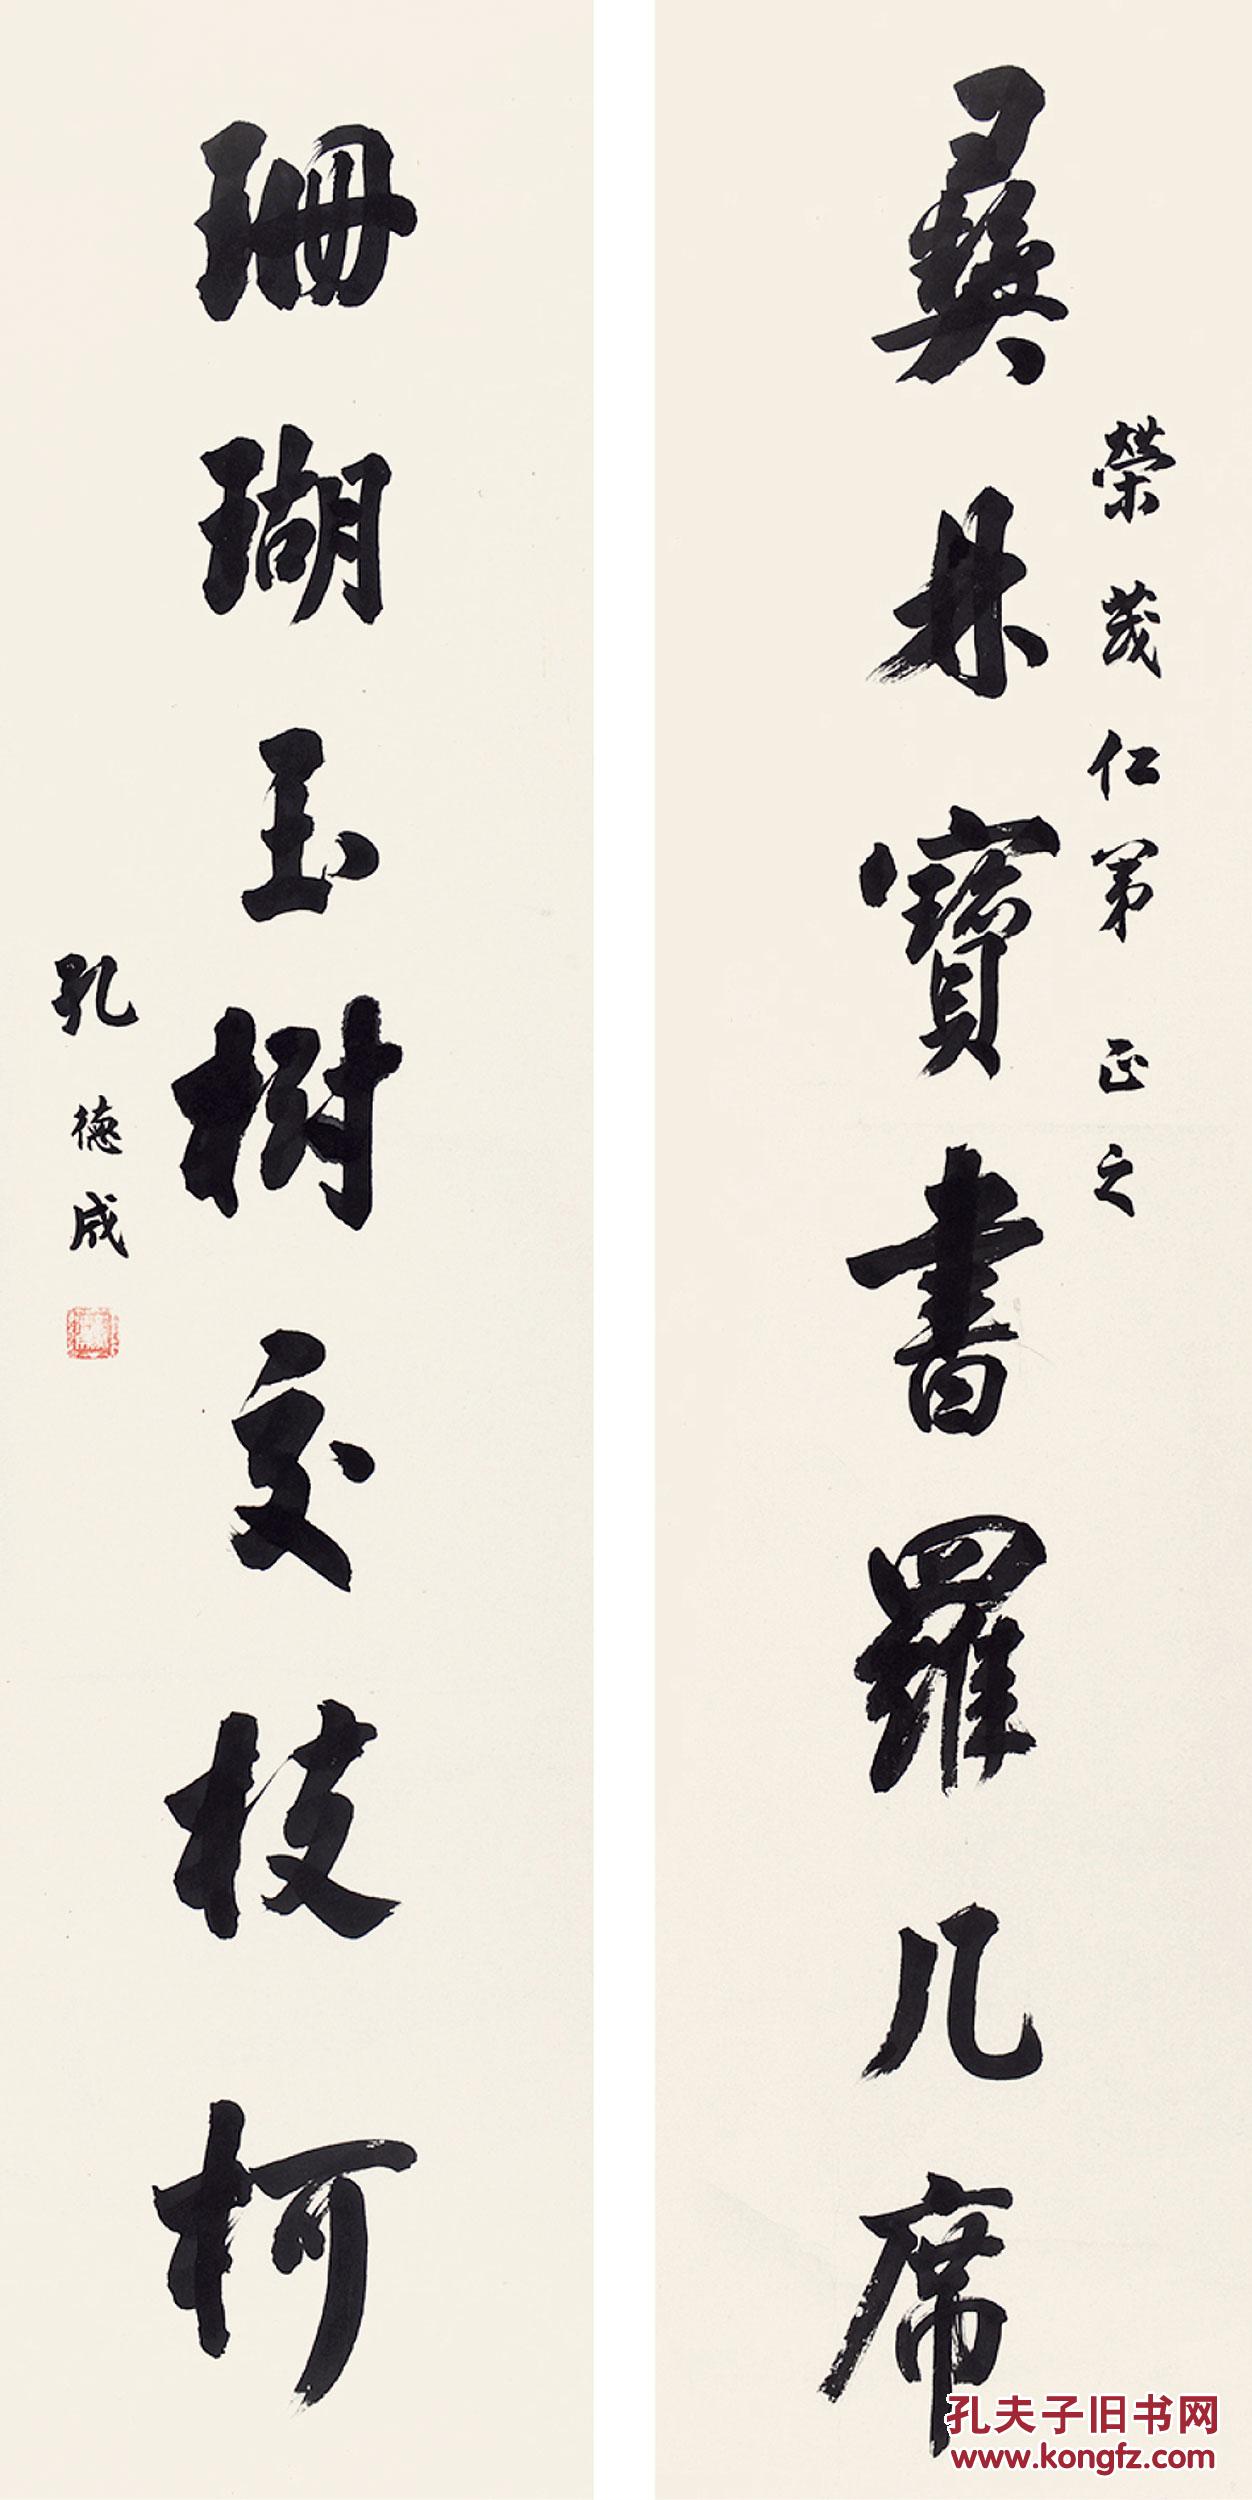 榮茂仁弟 正之
彝鼎寶書羅几席
珊瑚玉樹交枝柯
孔德成
孔夫子旧书网
www.kongfz.com